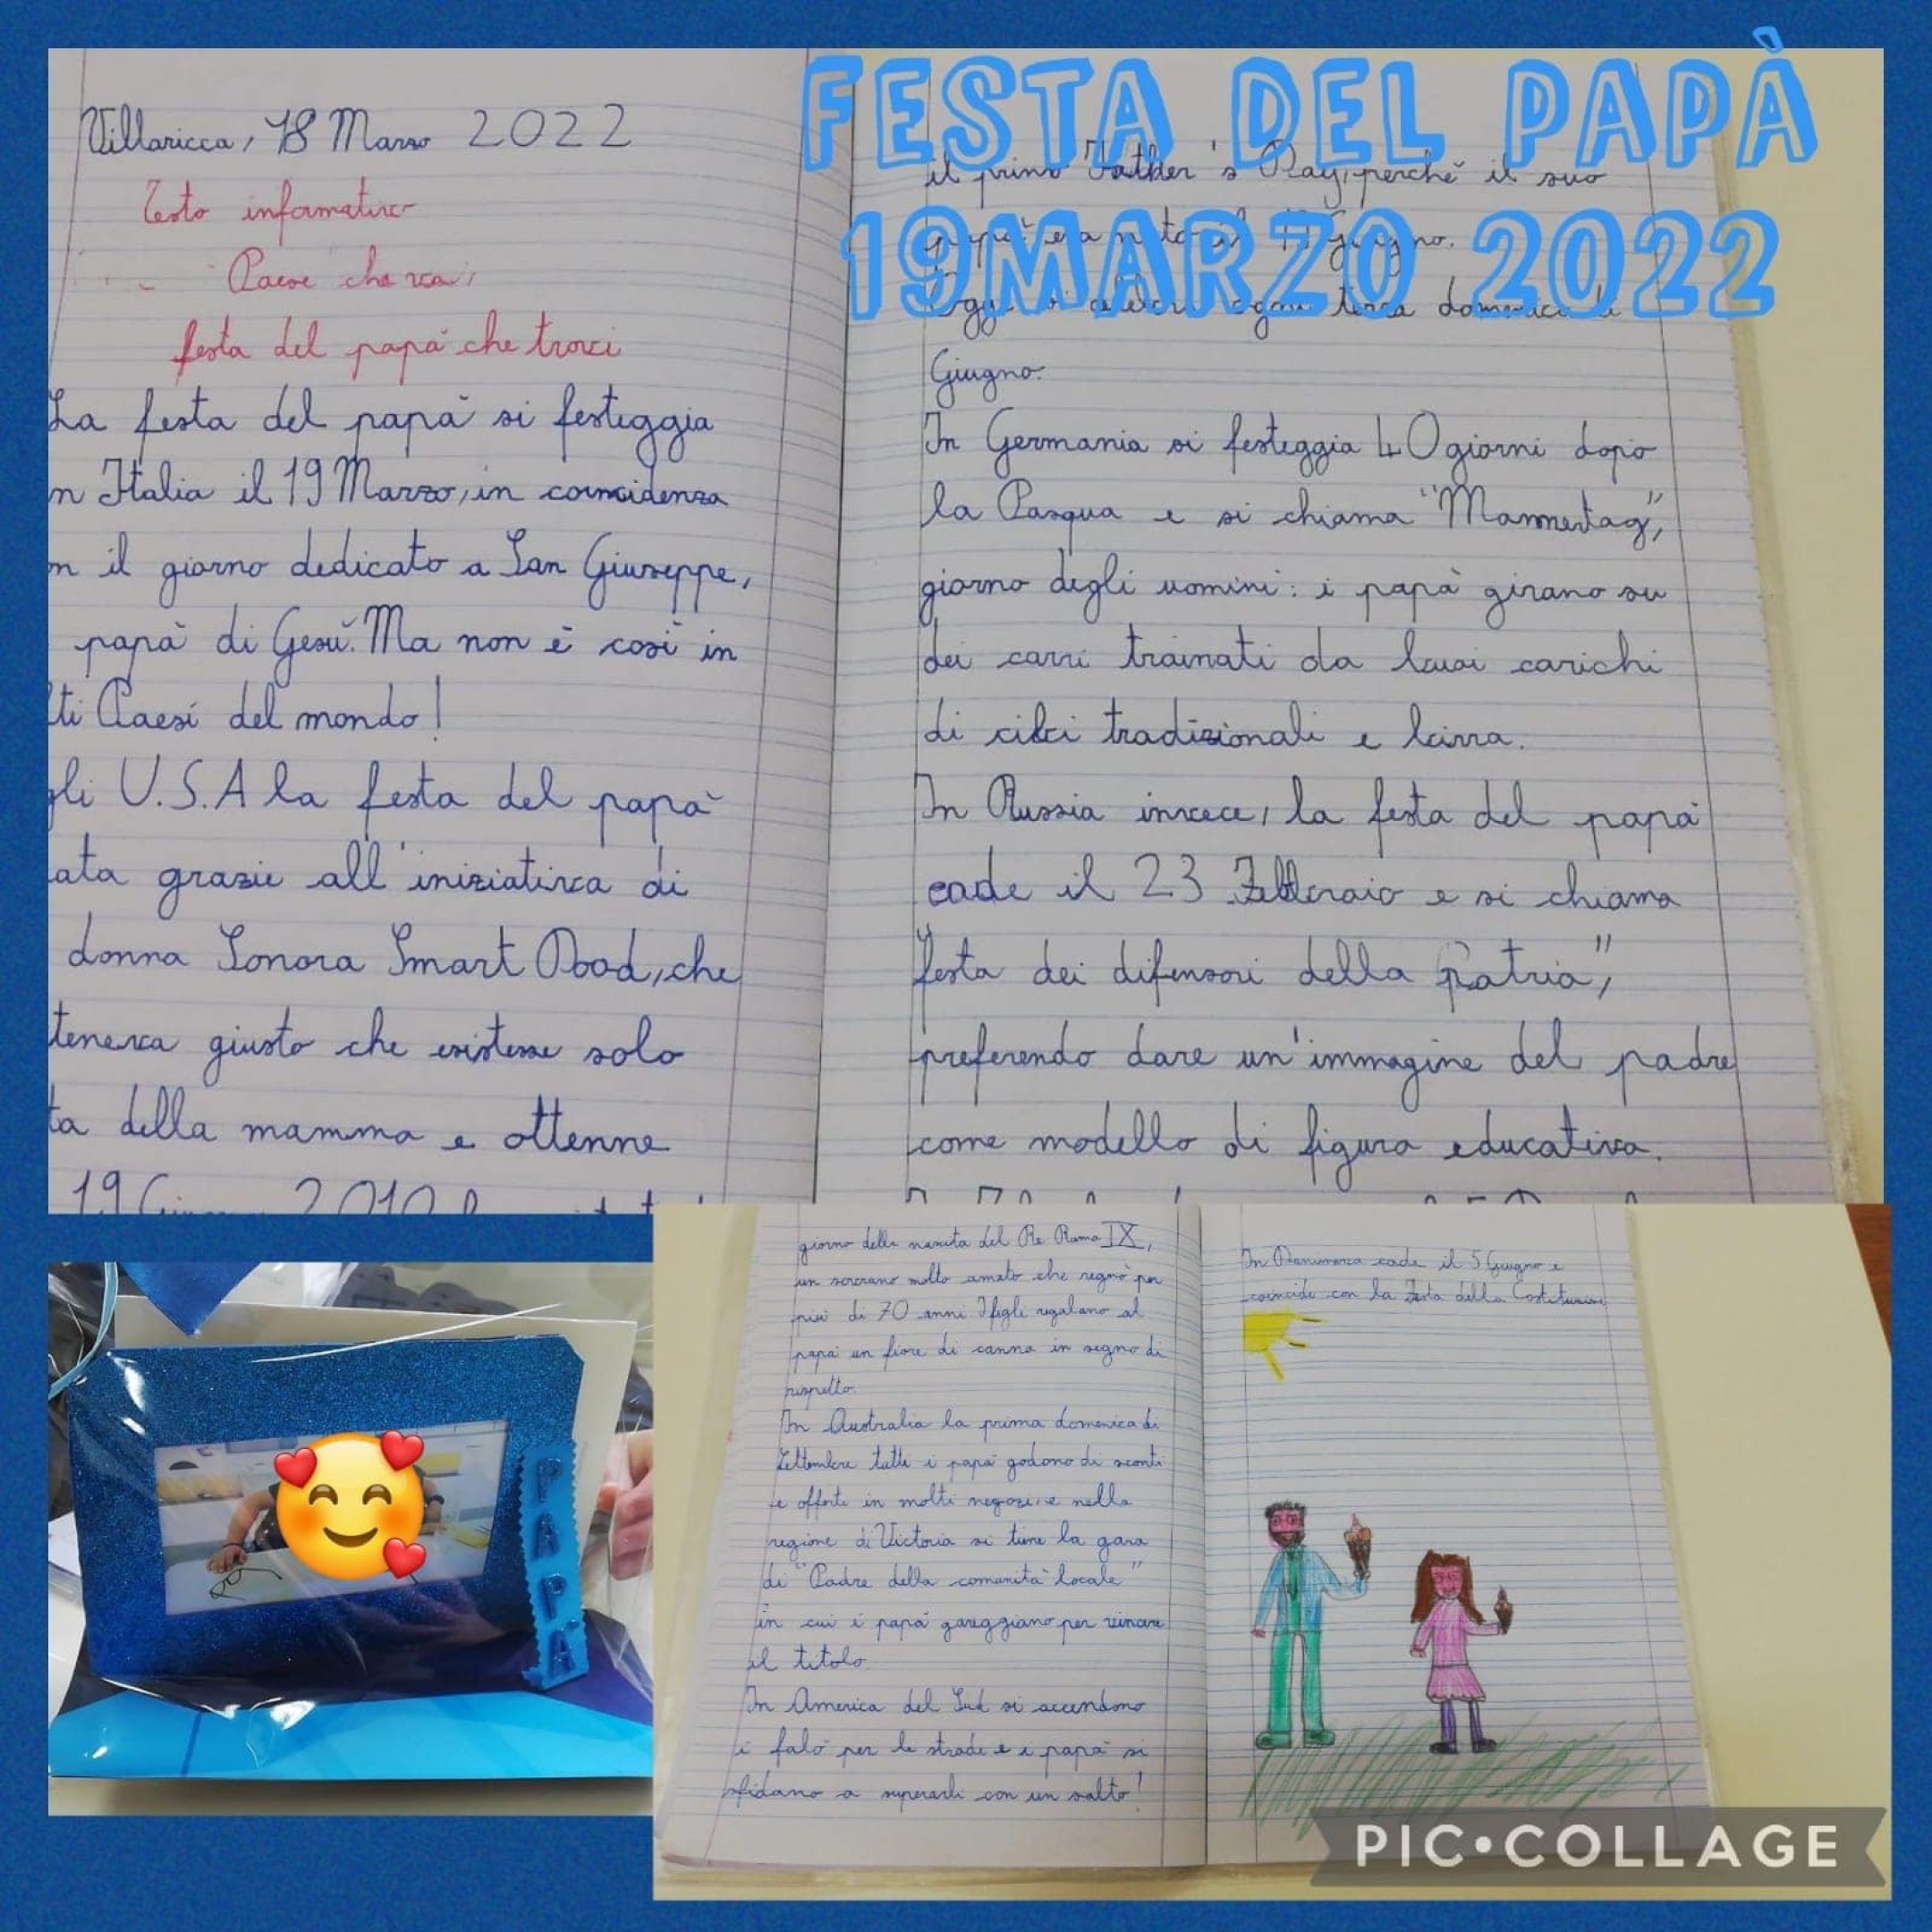 FESTA DEL PAPÀ
19MARZO 2022
Villaricca, 18 Marzo 2022
Testo informativo
Paese che vai,
festa del papà che trovi
La festa del papà si festeggia
n Italia il 19 Marzo, in coincidenza
n il giorno dedicato a San Giuseppe,
papà di Gesù. Ma non è così in
lti Paesi del mondo!
gli U.S.A la festa del papà
ata grazie all'iniziativa di
donna Sonora Smart Dood, che
teneva giusto che esistesse solo
ta della mamma e ottenne
19 2010
il primo Father's Day, perchè il suo
papà era nato il 19 Giugno.
Oggi si celebra ogni terza domenica di
Giugno.
In Germania si festeggia 40 giorni dopo
la Pasqua e si chiama "Mannertag",
giorno degli uomini: i papà girano su
dei carri trainati da buoi carichi
di cibi tradizionali e birra.
In Russia invece, la festa del papà
cade il 23 Febbraio e si chiama
"festa dei difensori della patria",
preferendo dare un'immagine del padre
come modello di figura educativa.
giorno della nascita del Re Rama IX,
un sovrano molto amato che regnò per
più di 70 anni. I figli regalano al
papà un fiore di canna in segno di
rispetto.
In Australia la prima domenica di
Settembre tutti i papà godono di sconti
e offerte in molti negozi, e nella
regione di Victoria si tiene la gara
di "Padre della comunità locale"
in cui i papà gareggiano per vincere
il titolo.
In America del Sud si accendono
i falò per le strade e i papà si
sfidano a superarli con un salto!
In Danimarca cade il 5 Giugno e
coincide con la Festa della Costituzione
PAPÀ
PIC•COLLAGE